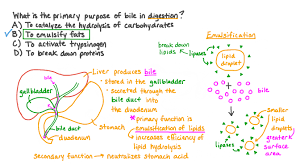 What is the primary purpose of bile in digestion?
A) To catalyze the hydrolysis of carbohydrates
B) To emulsify fats
C) To activate trypsinogen
D) To break down proteins
Liver produces bile
• stored in the gallbladder
• secreted through the
bile duct into
the duodenum
*primary function is
emulsification of lipids
↳ increases efficiency of
lipid hydrolysis
gallbladder
bile
bile duct
duodenum
Stomach
Secondary function → neutralizes stomach acid
Emulsification
break down
lipids
lipases
lipid
droplet
+
bile
smaller
lipid
droplets
greater
surface
area
lipases